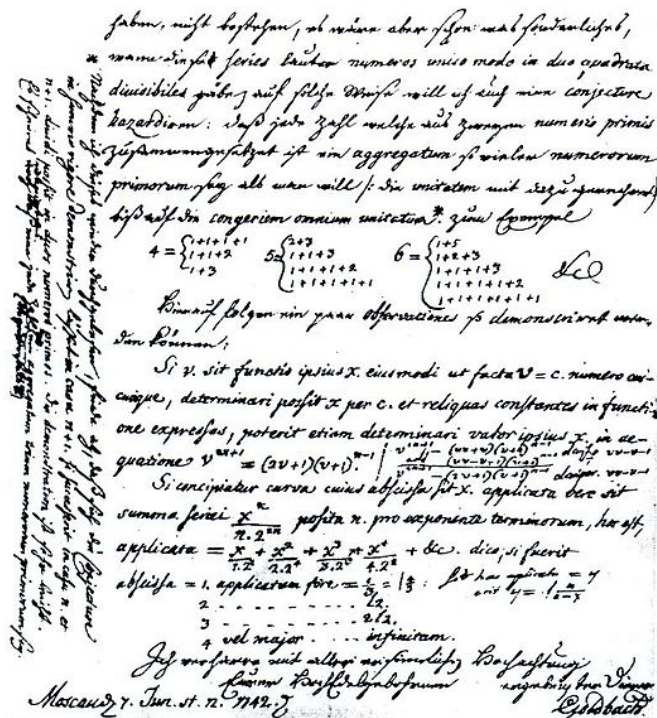 haben, nicht bestehen, es wäre aber schon was sonderliches,
wann diese series lauter numeros unico modo in duo quadrata
divisibiles gäbe, auf solche Weise will ich auch eine conjecture
hazardiren: daß jede Zahl welche aus zweyen numeris primis
zusammengesetzet ist ein aggregatum so vieler numerorum
primorum sey als man will /: die unitatem mit dazu gerechnet
biß auf die congeriem omnium unitatum*. zum Exempel
4 = { 1+1+1+1 5 = { 2+3 6 = { 1+5
1+1+2 1+1+3 1+2+3
1+3 1+1+1+2 1+1+1+3
1+1+1+1+1 1+1+1+1+2
1+1+1+1+1+1 &c
Hierauf folgen ein paar observationes so demonstriret werden
den können:
Si v. sit functio ipsius x. eiusmodi ut facta v = c. numero cui-
cunque, determinari possit x per c. et reliquas constantes in functi-
one expressas, poterit etiam determinari valor ipsius x. in ae-
quatione v^{2n+1} = (2v+1)(v+1)^{n-1}
Si concipiatur curva cuius abscissa sit x. applicata vero sit
summa seriei x^n / n.2^{2n} posita n. pro exponente terminorum, hoc est,
applicata = x/1.2^2 + x^2/2.2^4 + x^3/3.2^6 + x^4/4.2^8 + &c. dico, si fuerit
abscissa = 1. applicatam fore = l4/3 =
2 . . . . . . . . . l2.
3 . . . . . . . . . 2l2.
4 vel major . . . . infinitam.
Ich verharre mit aller ersinnlichen Hochachtung
Eurer Hochedelgebohrnen ergebenster Diener
Moscau d. 7. Jun. st. n. 1742. Goldbach.
* Nachdem ich dieses wieder durchgelesen, finde ich, daß sich die Conjecture
in summo rigore demonstriren läßet in casu n+1. si successerit in casu n. et
n+1. dividi possit in duos numeros primos. Die demonstration ist sehr leicht.
Es scheinet wenigstens, daß eine jede Zahl die größer ist als 2. ein aggregatum trium numerorum primorum sey.